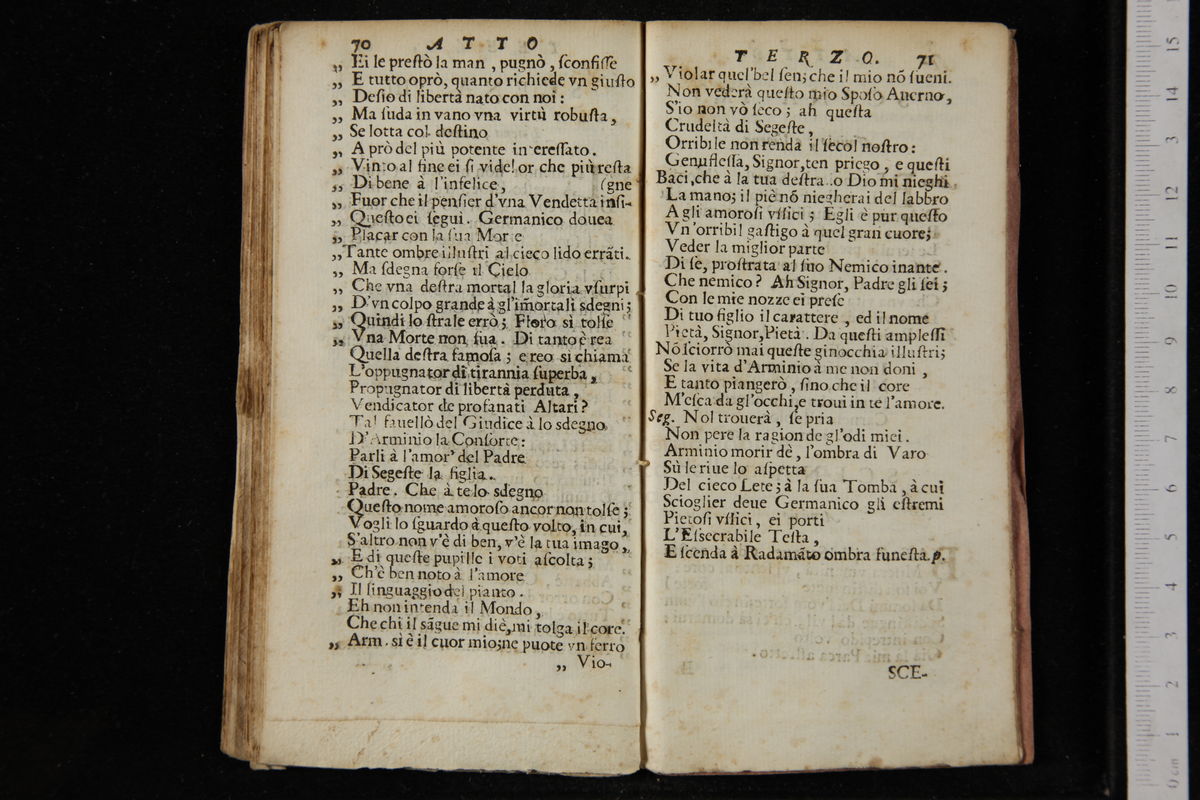 70 ATTO
„ Ei le preſtò la man , pugnò , ſconfiſſe
„ E tutto oprò, quanto richiede vn giuſto
„ Deſio di libertà nato con noi :
„ Ma ſuda in vano vna virtù robuſta,
„ Se lotta col deſtino
„ A prò del più potente intereſſato.
„ Vinto al fine ei ſi vide! or che più reſta
„ Di bene à l'infelice, (gne
„ Fuor che il penſier d'vna Vendetta inſi-
„ Queſto ei ſegui. Germanico douea
„ Placar con la ſua Morte
„Tante ombre illuſtri al cieco lido errãti.
„ Ma ſdegna forſe il Cielo
„ Che vna deſtra mortal la gloria vſurpi
„ D'vn colpo grande à gl'im̃ortali sdegni;
„ Quindi lo ſtrale errò; Floro si tolſe
„ Vna Morte non ſua. Di tanto è rea
Quella deſtra famoſa ; e reo si chiama
L'oppugnator di tirannia ſuperba,
Propugnator di libertà perduta,
Vendicator de profanati Altari?
Tal fauellò del Giudice à lo sdegno
D'Arminio la Conſorte:
Parli à l'amor' del Padre
Di Segeſte la figlia.
Padre. Che à te lo sdegno
Queſto nome amoroſo ancor non tolſe;
Vogli lo ſguardo à queſto volto, in cui,
S'altro non v'è di ben, v'è la tua imago,
„ E di queſte pupille i voti aſcolta;
„ Ch'è ben noto à l'amore
„ Il linguaggio del pianto.
Eh non intenda il Mondo,
Che chi il sãgue mi diè, mi tolga il core.
„ Arm. sì è il cuor mio; ne puote vn ferro
„ Vio-
TERZO. 71
„ Violar quel'bel ſen; che il mio nõ ſueni.
Non vederà queſto mio Spoſo Auerno,
S'io non vò ſeco ; ah queſta
Crudeltà di Segeſte,
Orribile non renda il ſecol noſtro:
Genufleſſa, Signor, ten priego, e queſti
Baci, che à la tua deſtra.. o Dio mi nieghi
La mano; il piè nõ niegherai del labbro
A gli amoroſi vffici ; Egli è pur queſto
Vn'orribil gaſtigo à quel gran cuore;
Veder la miglior parte
Di ſe, proſtrata al ſuo Nemico inante.
Che nemico? Ah Signor, Padre gli ſei;
Con le mie nozze ei preſe
Di tuo figlio il carattere , ed il nome
Pietà, Signor, Pietà. Da queſti ampleſſi
Nõ ſciorrò mai queſte ginocchia illuſtri;
Se la vita d'Arminio à me non doni ,
E tanto piangerò , ſino che il core
M'eſca da gl'occhi, e troui in te l'amore.
Seg. Nol trouerà , ſe pria
Non pere la ragion de gl'odi miei.
Arminio morir dè, l'ombra di Varo
Sù le riue lo aſpetta
Del cieco Lete; à la ſua Tomba, à cui
Scioglier deue Germanico gli eſtremi
Pietoſi vffici, ei porti
L'Eſsecrabile Teſta,
E ſcenda à Radamãto ombra funeſta. p.
SCE-
0 cm 1 2 3 4 5 6 7 8 9 10 11 12 13 14 15